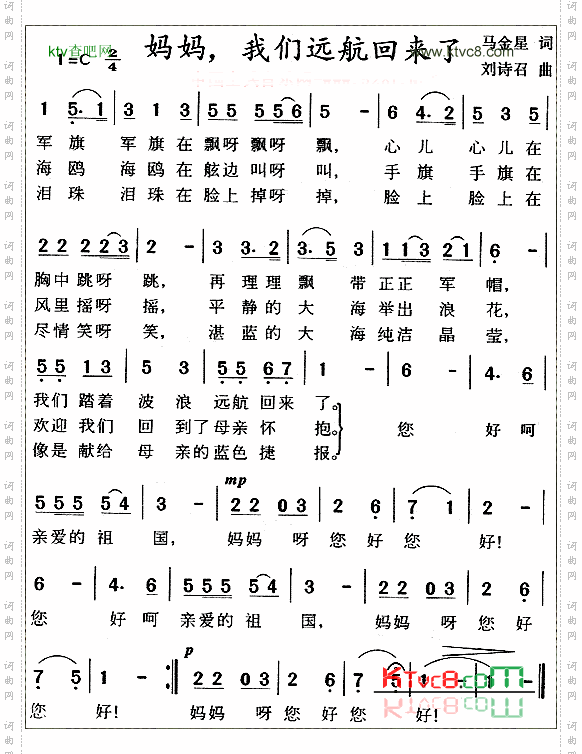 ktv查吧网 妈妈，我们远航回来了 www.ktvc8.com 马金星 词
1=C 2/4 刘诗召 曲
1 5·1 | 3 1 3 | 5 5 5 5 5 5 | 5 - | 6 4·2 | 6 4·2 5 |
军旗 军旗在飘呀飘呀飘， 心儿 心儿在
海鸥 海鸥在舷边叫呀叫， 手旗 手旗在
泪珠 泪珠在脸上掉呀掉， 脸上 脸上在
2 2 2 2 3 | 2 - | 3 3·2 | 3·5 3 | 1 1 3 2 1 | 6 - |
胸中跳呀跳， 再理理飘带正正军帽，
风里摇呀摇， 平静的大海举出浪花，
尽情笑呀笑， 湛蓝的大海纯洁晶莹，
5 5 1 3 | 5 3 | 5 5 6 7 | 1 - | 6 - | 4· 6 |
我们踏着波浪远航回来了。
欢迎我们回到了母亲怀抱。 您好呵
像是献给母亲的蓝色捷报。
mp
5 5 5 5 4 | 3 - | 2 2 0 3 | 2 6 | 7 1 | 2 - |
亲爱的祖国， 妈妈呀您好您好！
6 - | 4· 6 | 5 5 5 5 4 | 3 - | 2 2 0 3 | 2 6 |
您好呵亲爱的祖国， 妈妈呀您好
p
7 5 | 1 - :| 2 2 0 3 | 2 6 | 7 5 | 1 - | 1 - ||
KTvc8.com
您好！ 妈妈呀您好您好！
词曲网